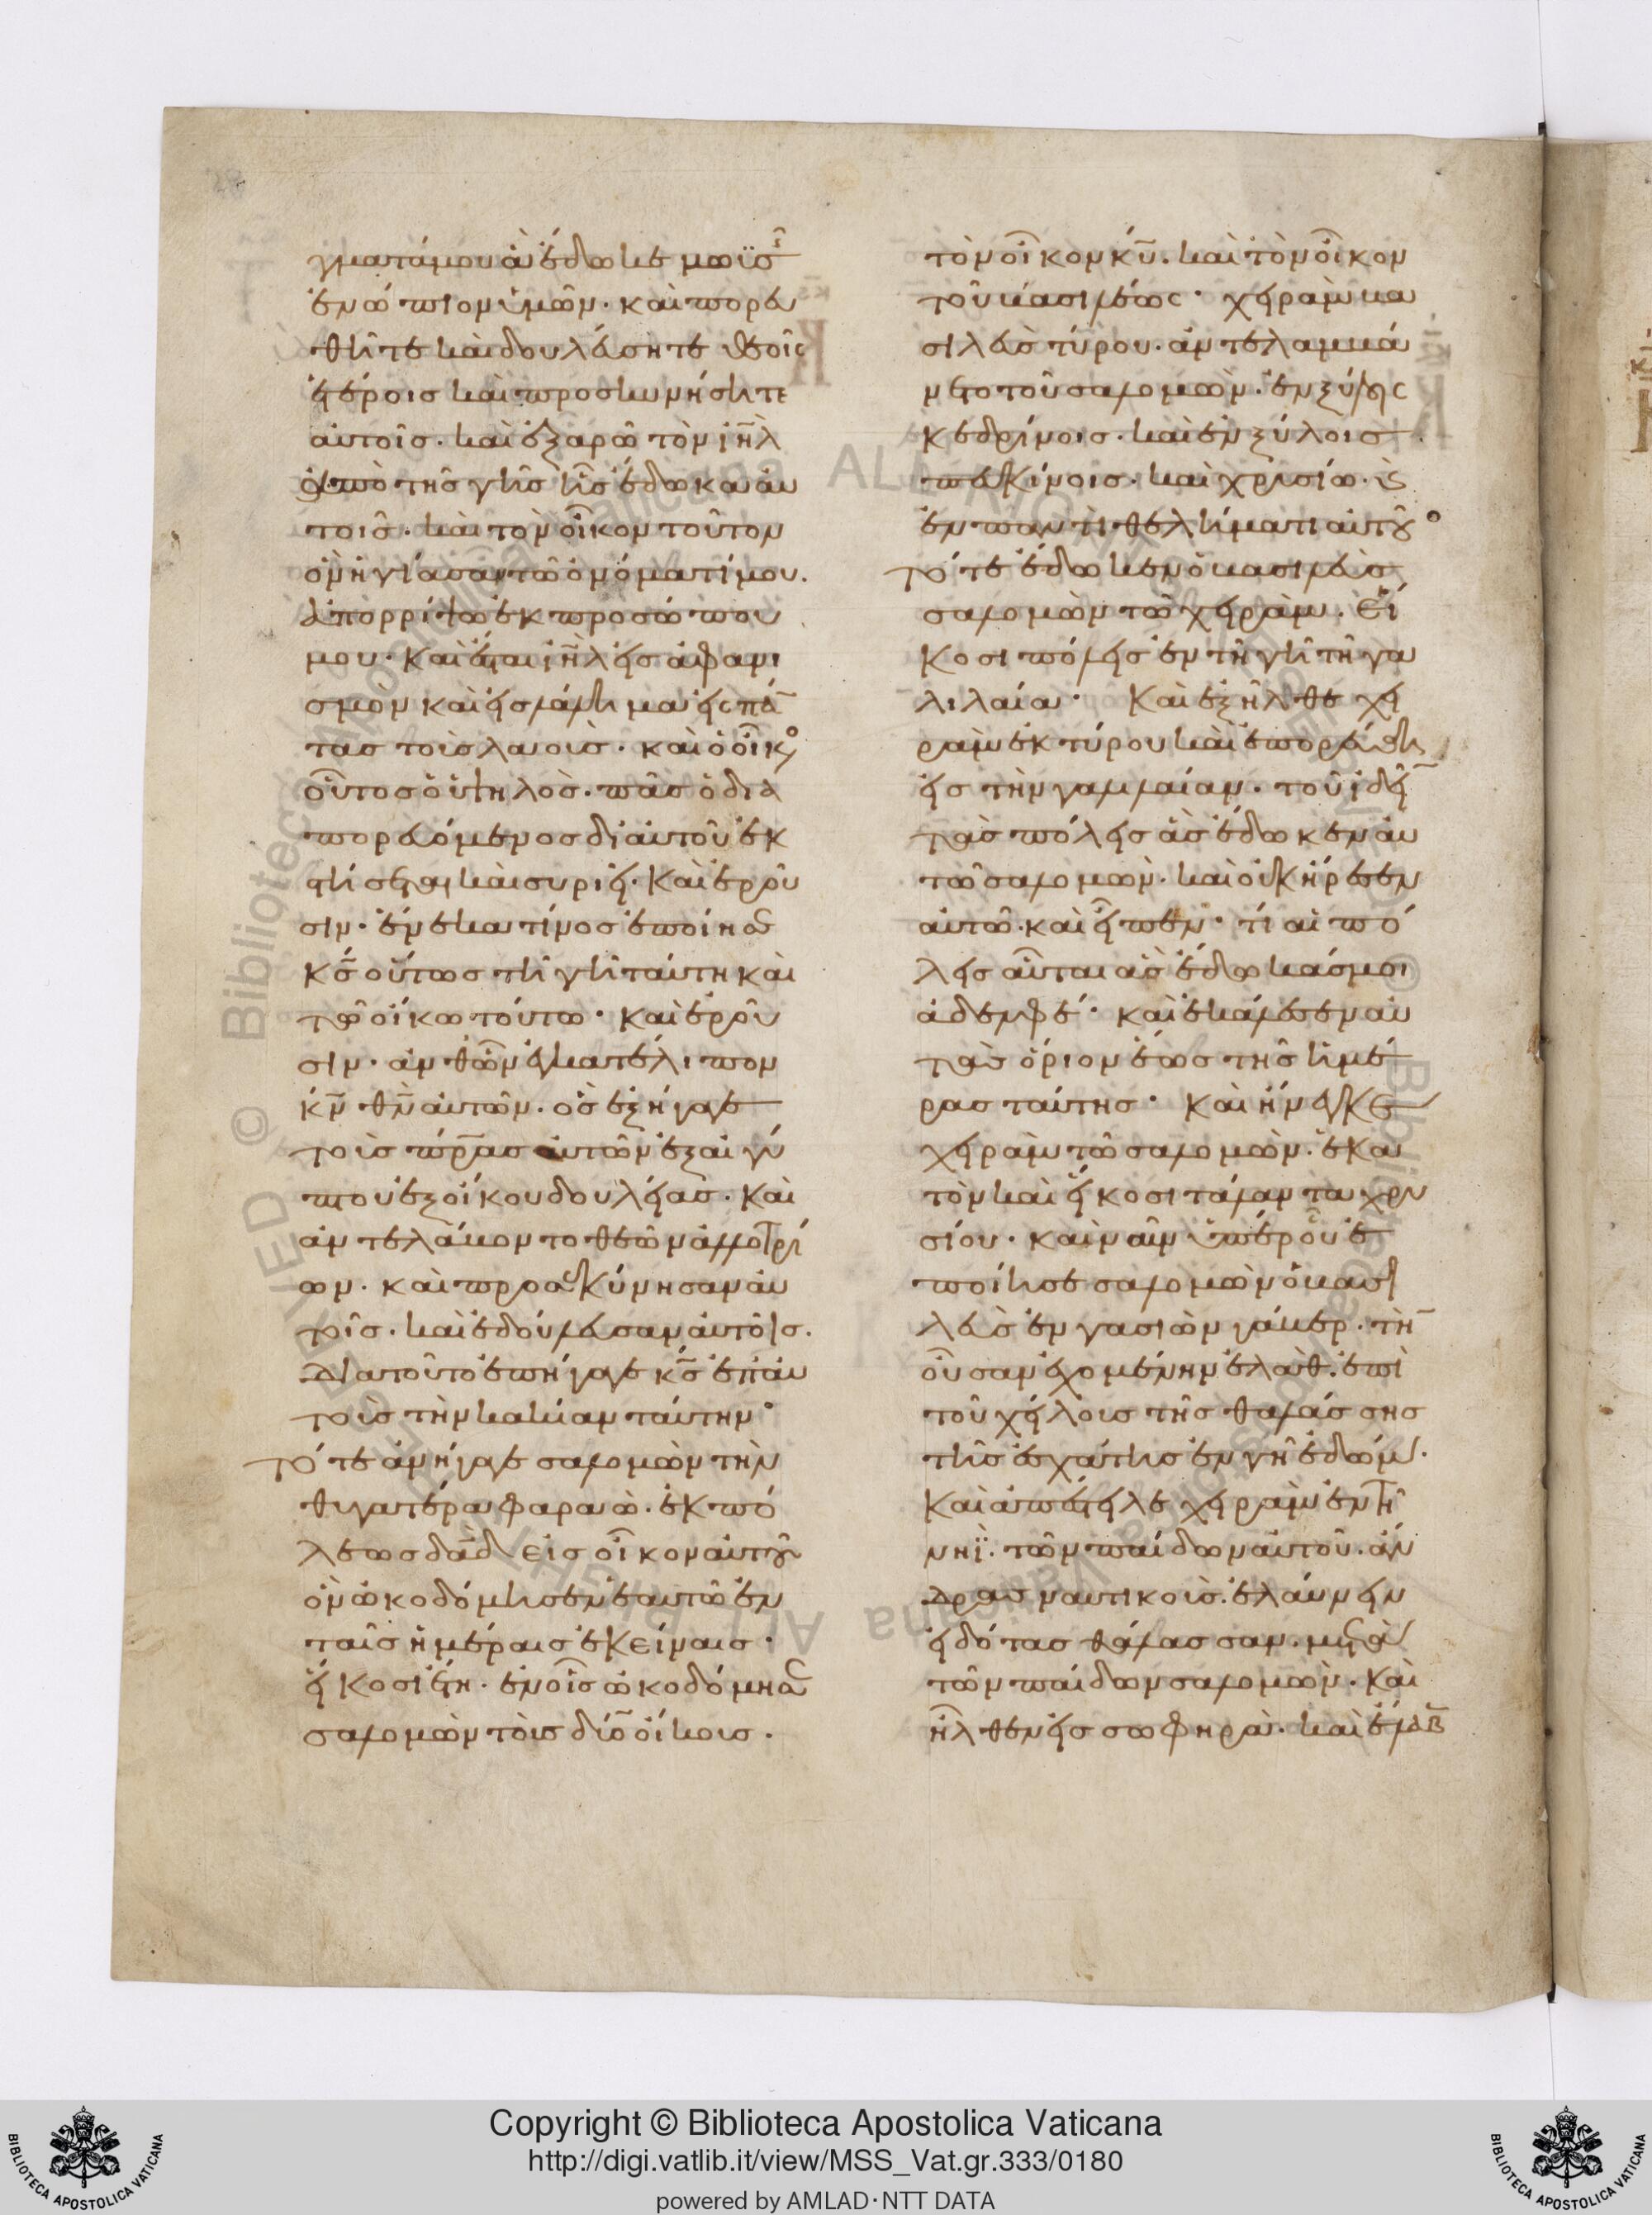 γματά μου ἃ ἔδωκε μωϋσῆς
ἐνώπιον ὑμῶν· καὶ πορευ
θῆτε καὶ δουλεύσητε θεοῖς
ἑτέροις καὶ προσκυνήσητε
αὐτοῖς· καὶ ἐξαρῶ τὸν ιηλ
ἀπὸ τῆς γῆς ἧς ἔδωκα αὐ
τοῖς· καὶ τὸν οἶκον τοῦτον
ὃν ἡγίασα τῶ ὀνόματί μου.
ἀπορρίψω ἐκ προσώπου
μου· καὶ ἔσται ιηλ εἰς ἀφανι
σμὸν καὶ εἰς λάλημα εἰς πάν
τας τοὺς λαούς· καὶ ὁ οἶκος
οὗτος ὁ ὑψηλός· πᾶς ὁ δια
πορευόμενος δι' αὐτοῦ ἐκ
στήσεται καὶ συριεῖ· καὶ ἐροῦ
σιν· ἕνεκα τίνος ἐποίησε
κς οὕτως τῆ γῆ ταύτη καὶ
τῶ οἴκω τούτω· καὶ ἐροῦ
σιν· ἀνθ' ὧν ἐγκατέλιπον
κν θν αὐτῶν· ὃς ἐξήγαγε
τοὺς πρας αὐτῶν ἐξ αἰγύ
πτου ἐξ οἴκου δουλείας· καὶ
ἀντελάβοντο θεῶν ἀλλοτρί
ων· καὶ προσεκύνησαν αὐ
τοῖς· καὶ ἐδούλευσαν αὐτοῖς.
Διὰ τοῦτο ἐπήγαγε κς ἐπ' αὐ
τοὺς τὴν κακίαν ταύτην·
Τότε ἀνήγαγε σαλομὼν τὴν
θυγατέρα φαραώ· ἐκ πό
λεως δαδ εἰς οἶκον αὐτοῦ
ὃν ὠκοδόμησεν ἑαυτῶ ἐν
ταῖς ἡμέραις ἐκείναις·
εἴκοσι ἔτη· ἐν οἷς ὠκοδόμησε
σαλομὼν τοὺς δύο οἴκους.
τὸν οἶκον κυ· καὶ τὸν οἶκον
τοῦ βασιλέως· χειρὰμ βα
σιλεὺς τύρου· ἀντελαμβά
νετο τοῦ σαλομών· ἐν ξύλοις
κεδρίνοις· καὶ ἐν ξύλοις
πευκίνοις· καὶ χρυσίω· καὶ
ἐν παντὶ θελήματι αὐτοῦ·
Τότε ἔδωκεν ὁ βασιλεὺς
σαλομὼν τῶ χειράμ· εἴ
κοσι πόλεις ἐν τῆ γῆ τῆ γα
λιλαία· Καὶ ἐξῆλθε χει
ρὰμ ἐκ τύρου καὶ ἐπορεύθη
εἰς τὴν γαλιλαίαν· τοῦ ἰδεῖν
τὰς πόλεις ἃς ἔδωκεν αὐ
τῶ σαλομών· καὶ οὐκ ἤρεσεν
αὐτῶ· καὶ εἶπεν· τί αἱ πό
λεις αὗται ἃς ἔδωκάς μοι
ἀδελφέ· καὶ ἐκάλεσεν αὐ
τὰς ὅριον ἕως τῆς ἡμέ
ρας ταύτης· Καὶ ἤνεγκε
χειρὰμ τῶ σαλομών· ἑκα
τὸν καὶ εἴκοσι τάλαντα χρυ
σίου· καὶ ναῦν ὑπὲρ οὗ ἐ
ποίησε σαλομὼν ὁ βασι
λεὺς ἐν γασιὼν γάβερ· τὴν
οὖσαν ἐχομένην ἐλάθ· ἐπὶ
τοῦ χείλους τῆς θαλάσσης
τῆς ἐσχάτης ἐν γῆ ἐδώμ.
Καὶ ἀπέστειλε χειρὰμ ἐν τῆ
νηΐ· τῶν παίδων αὐτοῦ· ἄν
δρας ναυτικούς· ἐλαύνειν
εἰδότας θάλασσαν· μετὰ
τῶν παίδων σαλομών· Καὶ
ἦλθεν εἰς σωφηρά· καὶ ἔλαβ
Copyright © Biblioteca Apostolica Vaticana
http://digi.vatlib.it/view/MSS_Vat.gr.333/0180
powered by AMLAD·NTT DATA